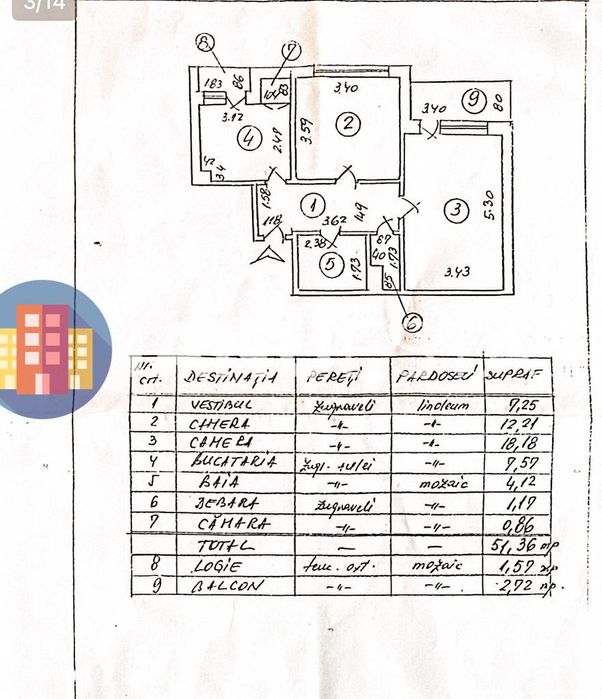 3/14
8
7
183
86
104
83
3.40
9
3.40
80
3.12
4
2.48
3.59
2
42
34
1.58
1
3.62
149
118
3
5.30
67
2.38
5
1.73
40
1.73
65
3.43
6
Nr. crt. DESTINAȚIA PEREȚI PARDOSELI SUPRAF
1 VESTIBUL Zugraveli linoleum 7,25
2 CAMERA -"- -"- 12,21
3 CAMERA -"- -"- 18,18
4 BUCATARIA Zugr. ulei -"- 7,57
5 BAIA -"- mozaic 4,12
6 DEBARA Zugraveli -"- 1,17
7 CĂMARA -"- -"- 0,86
TOTAL — — 51,36 mp
8 LOGIE mozaic 1,57 mp
9 BALCON -"- -"- 2,72 mp.